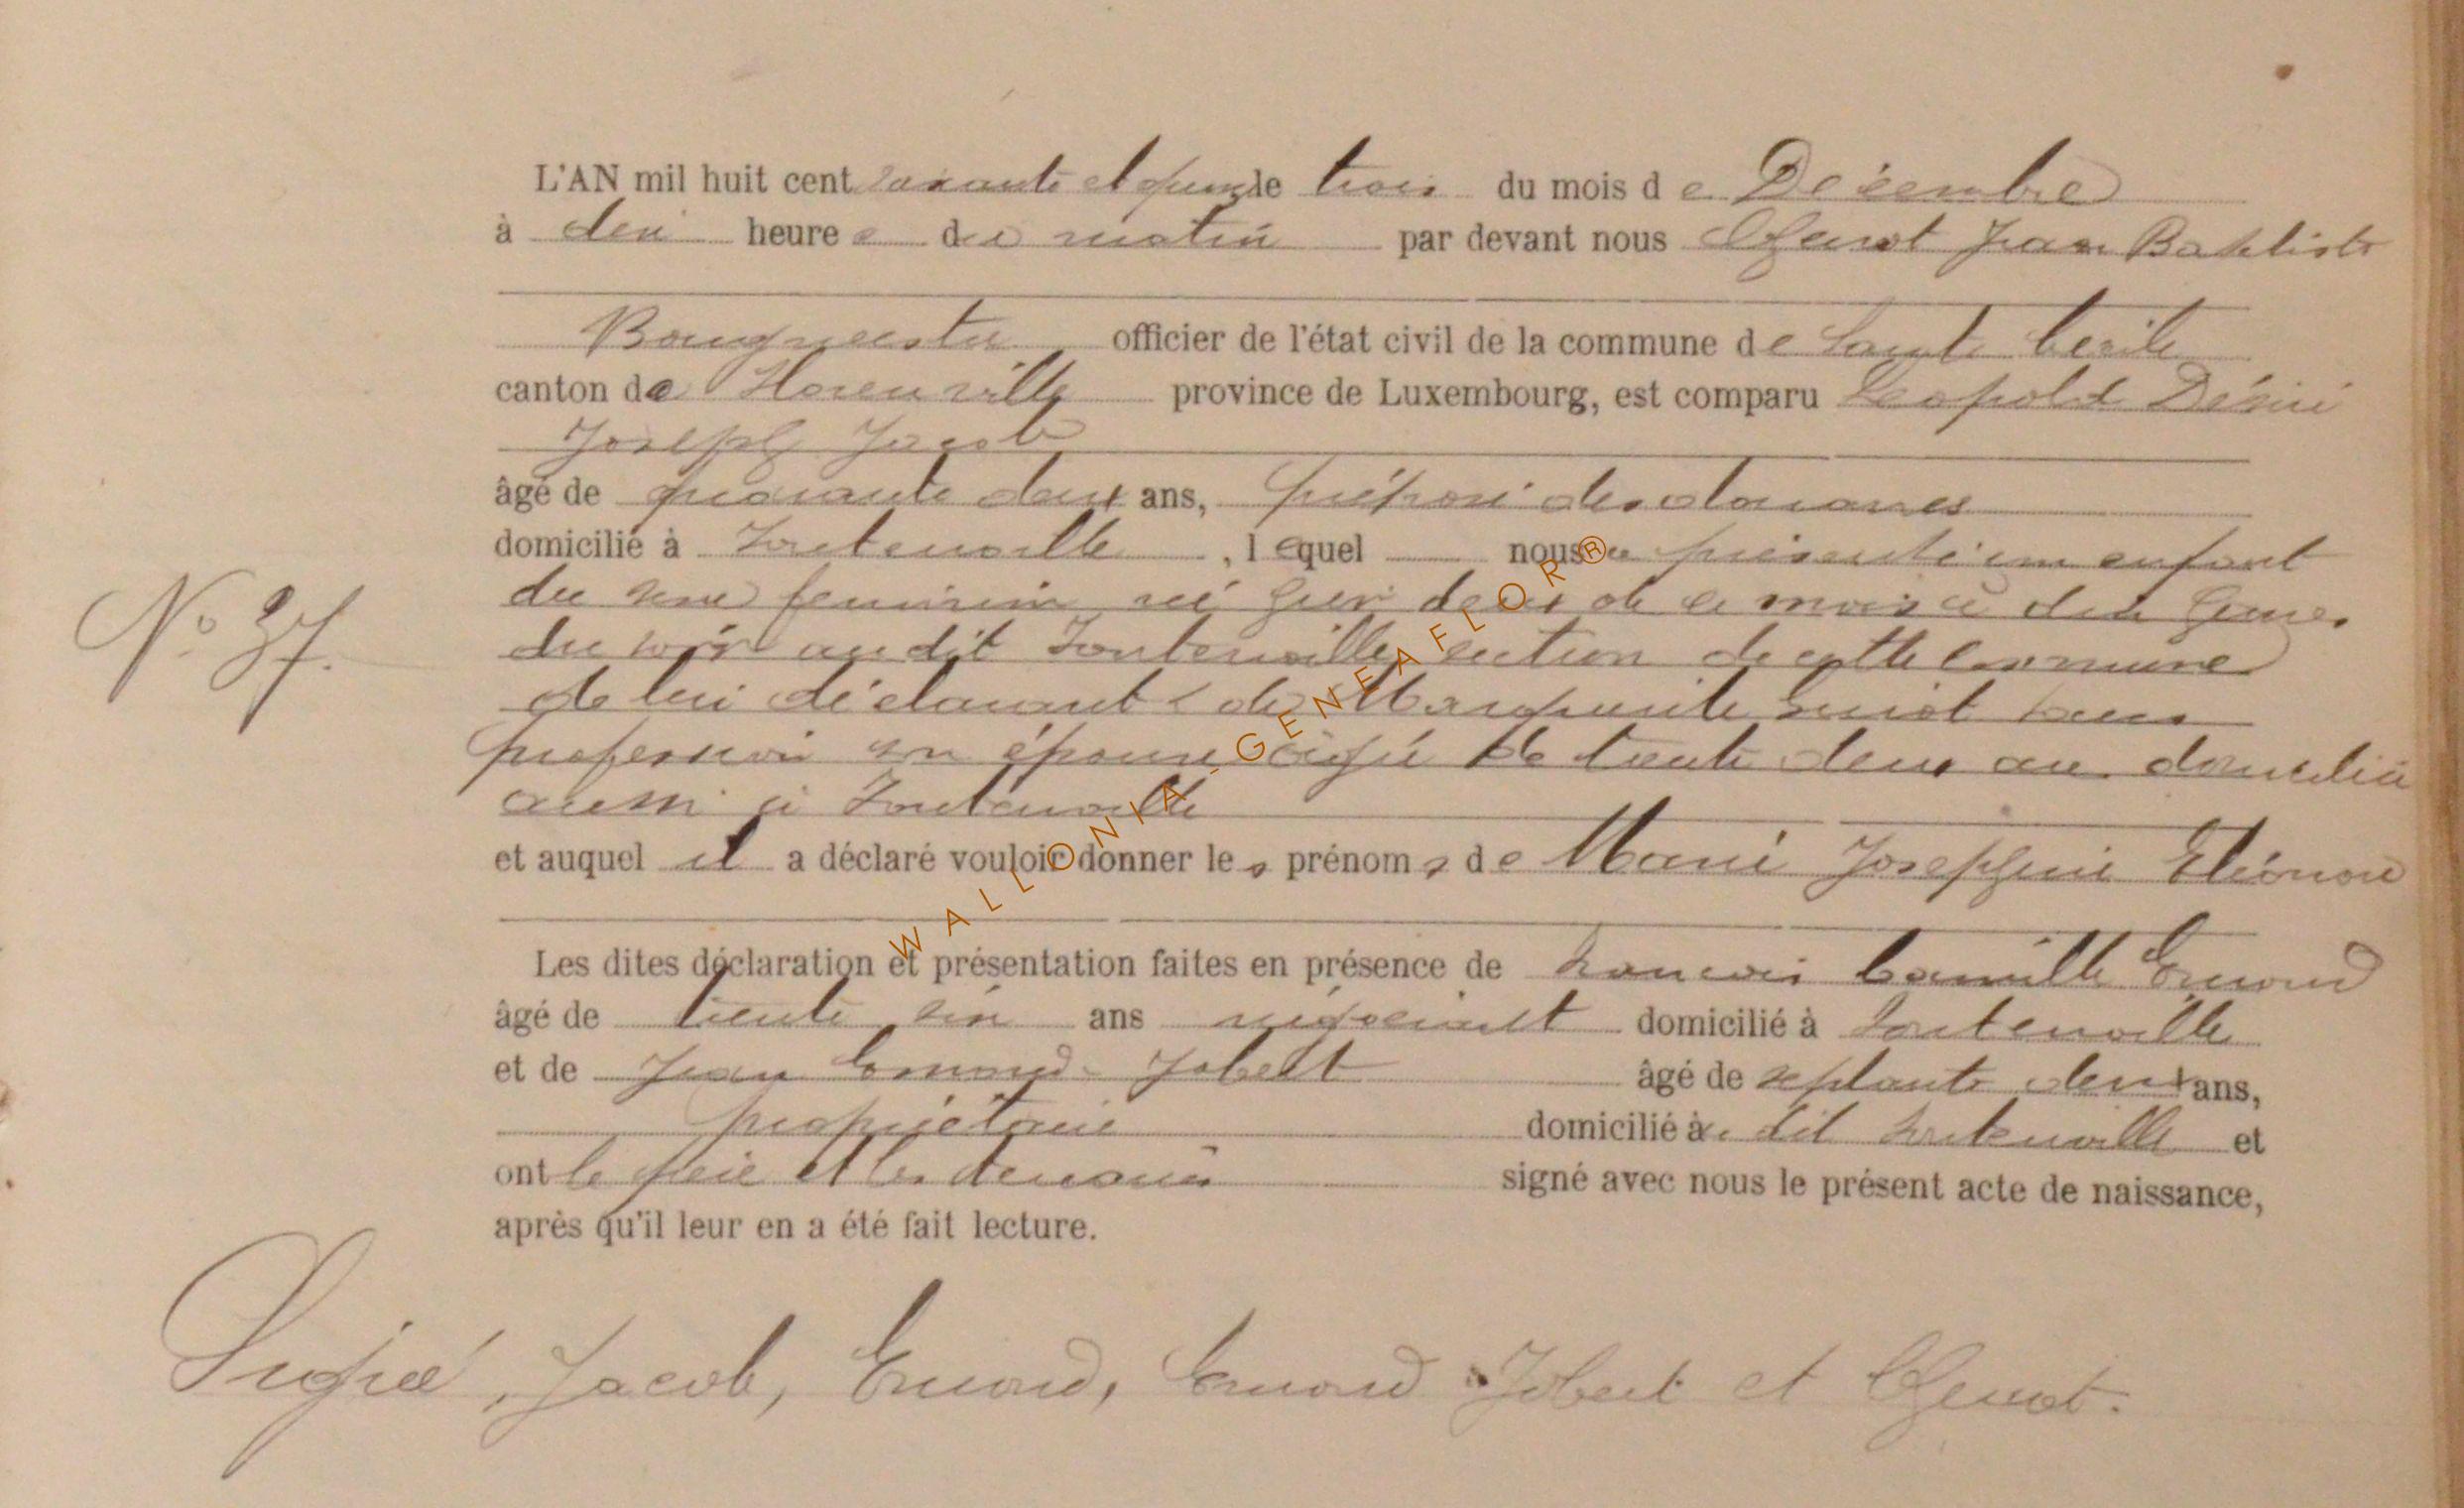 L'AN mil huit cent soixante et le trois du mois de Décembre
à dix heures du matin par devant nous Jean Baptiste
Bourgmestre officier de l'état civil de la commune de Sainte Cécile
canton de Florenville province de Luxembourg, est comparu Léopold Désiré
Joseph Jacob
âgé de quarante deux ans, préposé des douanes
domicilié à Fontenoille, lequel nous a présenté un enfant
du sexe feminin né hier deux de ce mois à heures
du soir audit Fontenoille section de cette commune
N° 37.
de lui déclarant & de Marguerite sans
profession son épouse âgée de trente deux ans domiciliée
aussi à Fontenoille
et auquel il a déclaré vouloir donner les prénoms de Marie Josephine Eléonore
Les dites déclaration et présentation faites en présence de Camille Emond
âgé de trente six ans négociant domicilié à Fontenoille
et de Jean Emond-Jobert âgé de septante deux ans,
propriétaire domicilié à dit Fontenoille et
ont le père et les temoins signé avec nous le présent acte de naissance,
après qu'il leur en a été fait lecture.
Signé, Jacob, Emond, Emond Jobert et
WALLONIA-GENEAFLOR®